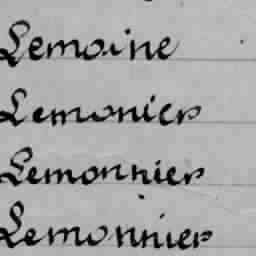 Lemoine
Lemonier
Lemonnier
Lemonnier